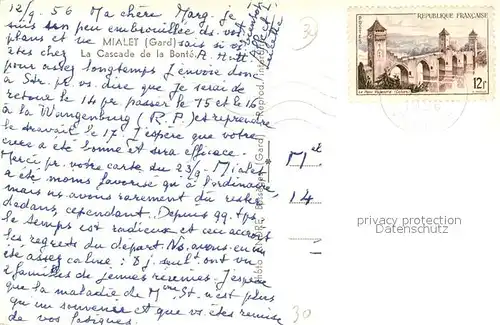 12/9. 56 Ma chère Marg. je
suis un peu embrouillée ds. vos
plans et ne sais si
MIALET (Gard)
êtes chez A.
La Cascade de la Bonté.
pour assez longtemps. J'envoie donc
à Str. pr. vs. dire que je serai de
retour le 14 pr. passer le 15 et le 16
à la Wangenburg (R.P.) et reprendre
le travail le 17. J'espère que votre
cure a été bonne et sera efficace.
Merci pr. votre carte du 23/8. Mialet
a été moins favorisé qu'à l'ordinaire
mais ns avons rarement du rester
dedans, cependant. Depuis qq. jrs
le temps est radieux et ceci accroît
les regrets du départ. Ns. avons eu un
été assez calme : 8 j. seult. ont vu
2 familles de jeunes réunies. J'espère
que la maladie de Mme St. n'est plus
qu'un souvenir et que vs. êtes remise
de vos fatigues.
Besseges (Gard) - Reprod.
Mel
14
30
REPUBLIQUE FRANÇAISE
12F
privacy protection
DANHINA.com